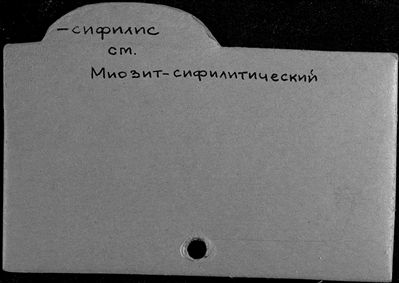 -сифилис
см.
Миозит-сифилитический